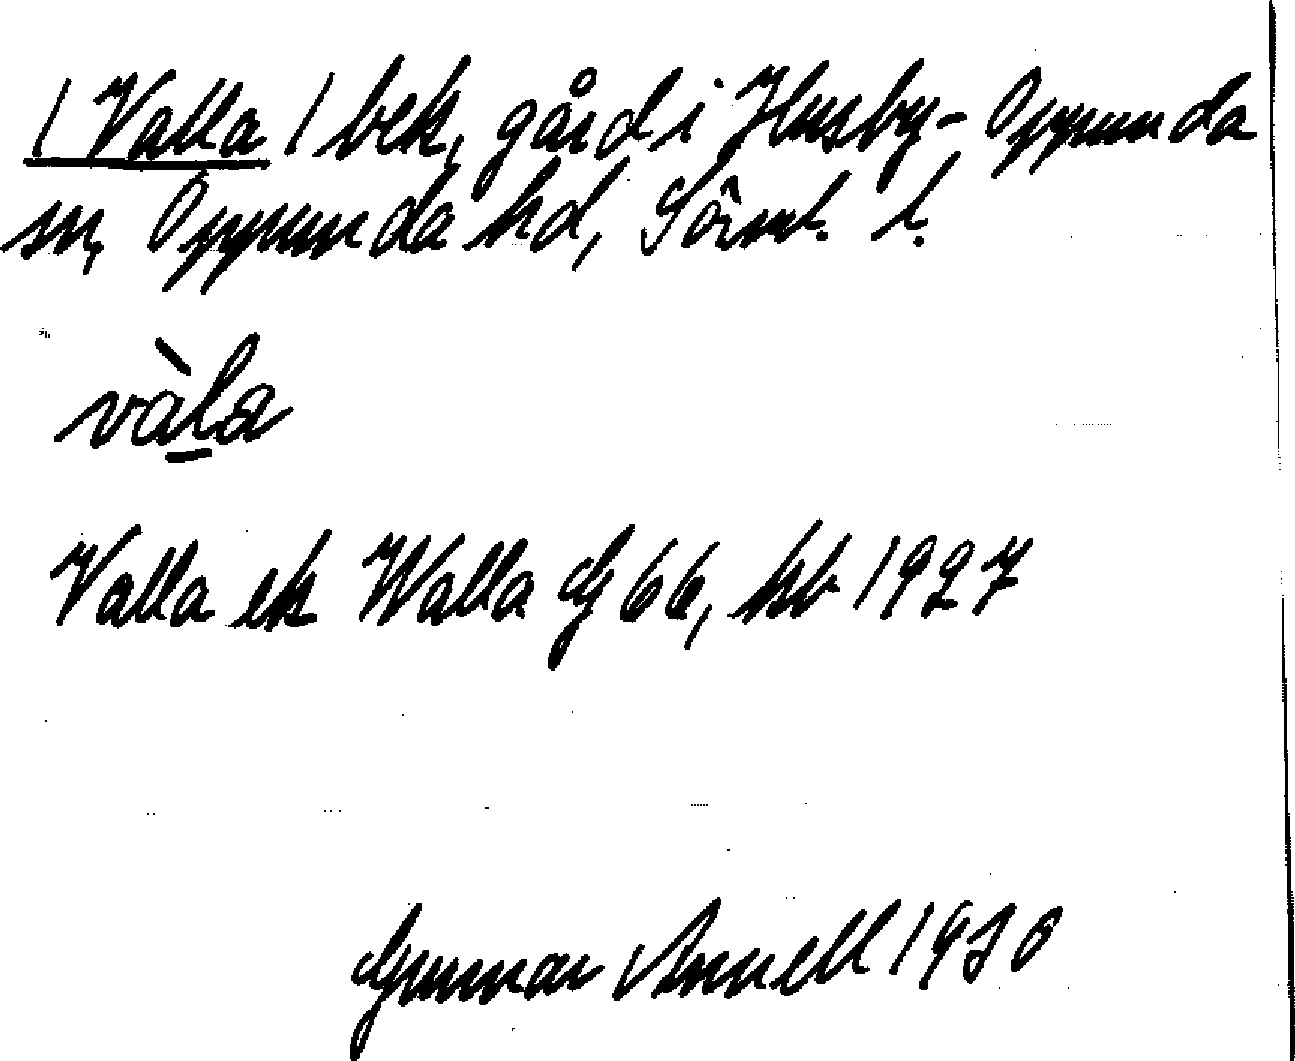 / Valla / bek, gård i Husby-Oppunda
sn, Oppunda hd, Sörml. l.
vàl̲a
Valla ek Walla G 66, kb 1927
Gunnar Annell 1930